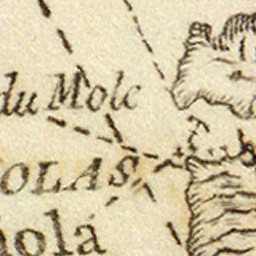 du Mole
OLAS
olá